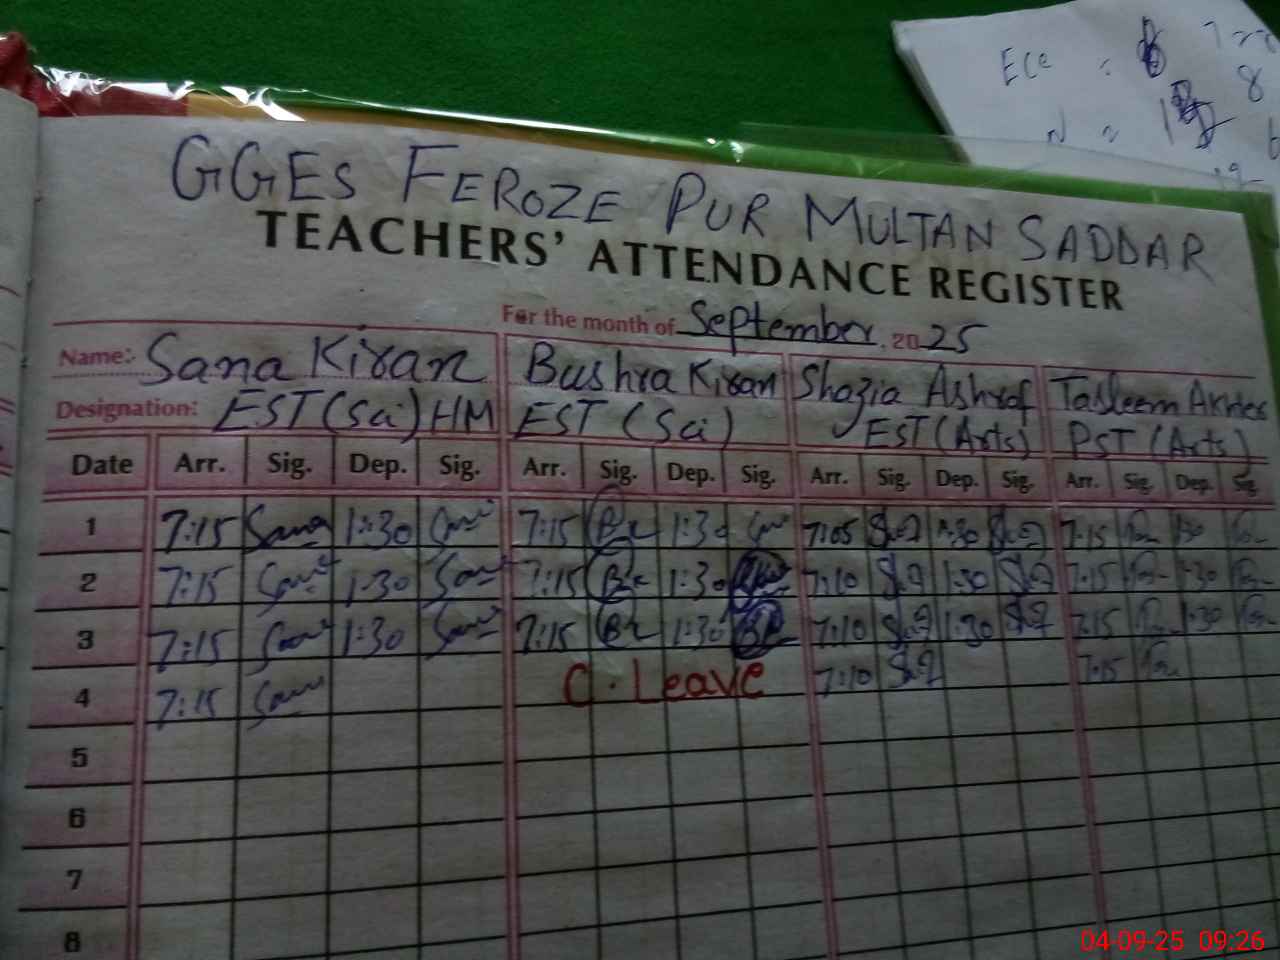 Ece : 8
N = 1
GGES FEROZE PUR MULTAN SADDAR
TEACHERS' ATTENDANCE REGISTER
For the month of September, 2025
Name: Sana Kiran Bushra Kiran Shazia Ashraf Tasleem Akhter
Designation: EST (Sci) HM EST (Sci) EST (Arts) PST (Arts)
Date Arr. Sig. Dep. Sig. Arr. Sig. Dep. Sig. Arr. Sig. Dep. Sig. Arr. Sig. Dep. Sig.
1 7:15 Sana 1:30 7:15 1:30 7:05 1:30 7:15 1:30
2 7:15 1:30 7:15 1:30 7:10 1:30 7:15 1:30
3 7:15 1:30 7:15 1:30 7:10 1:30 7:15 1:30
4 7:15 C. Leave 7:10 7:15
5
6
7
8
04-09-25 09:26